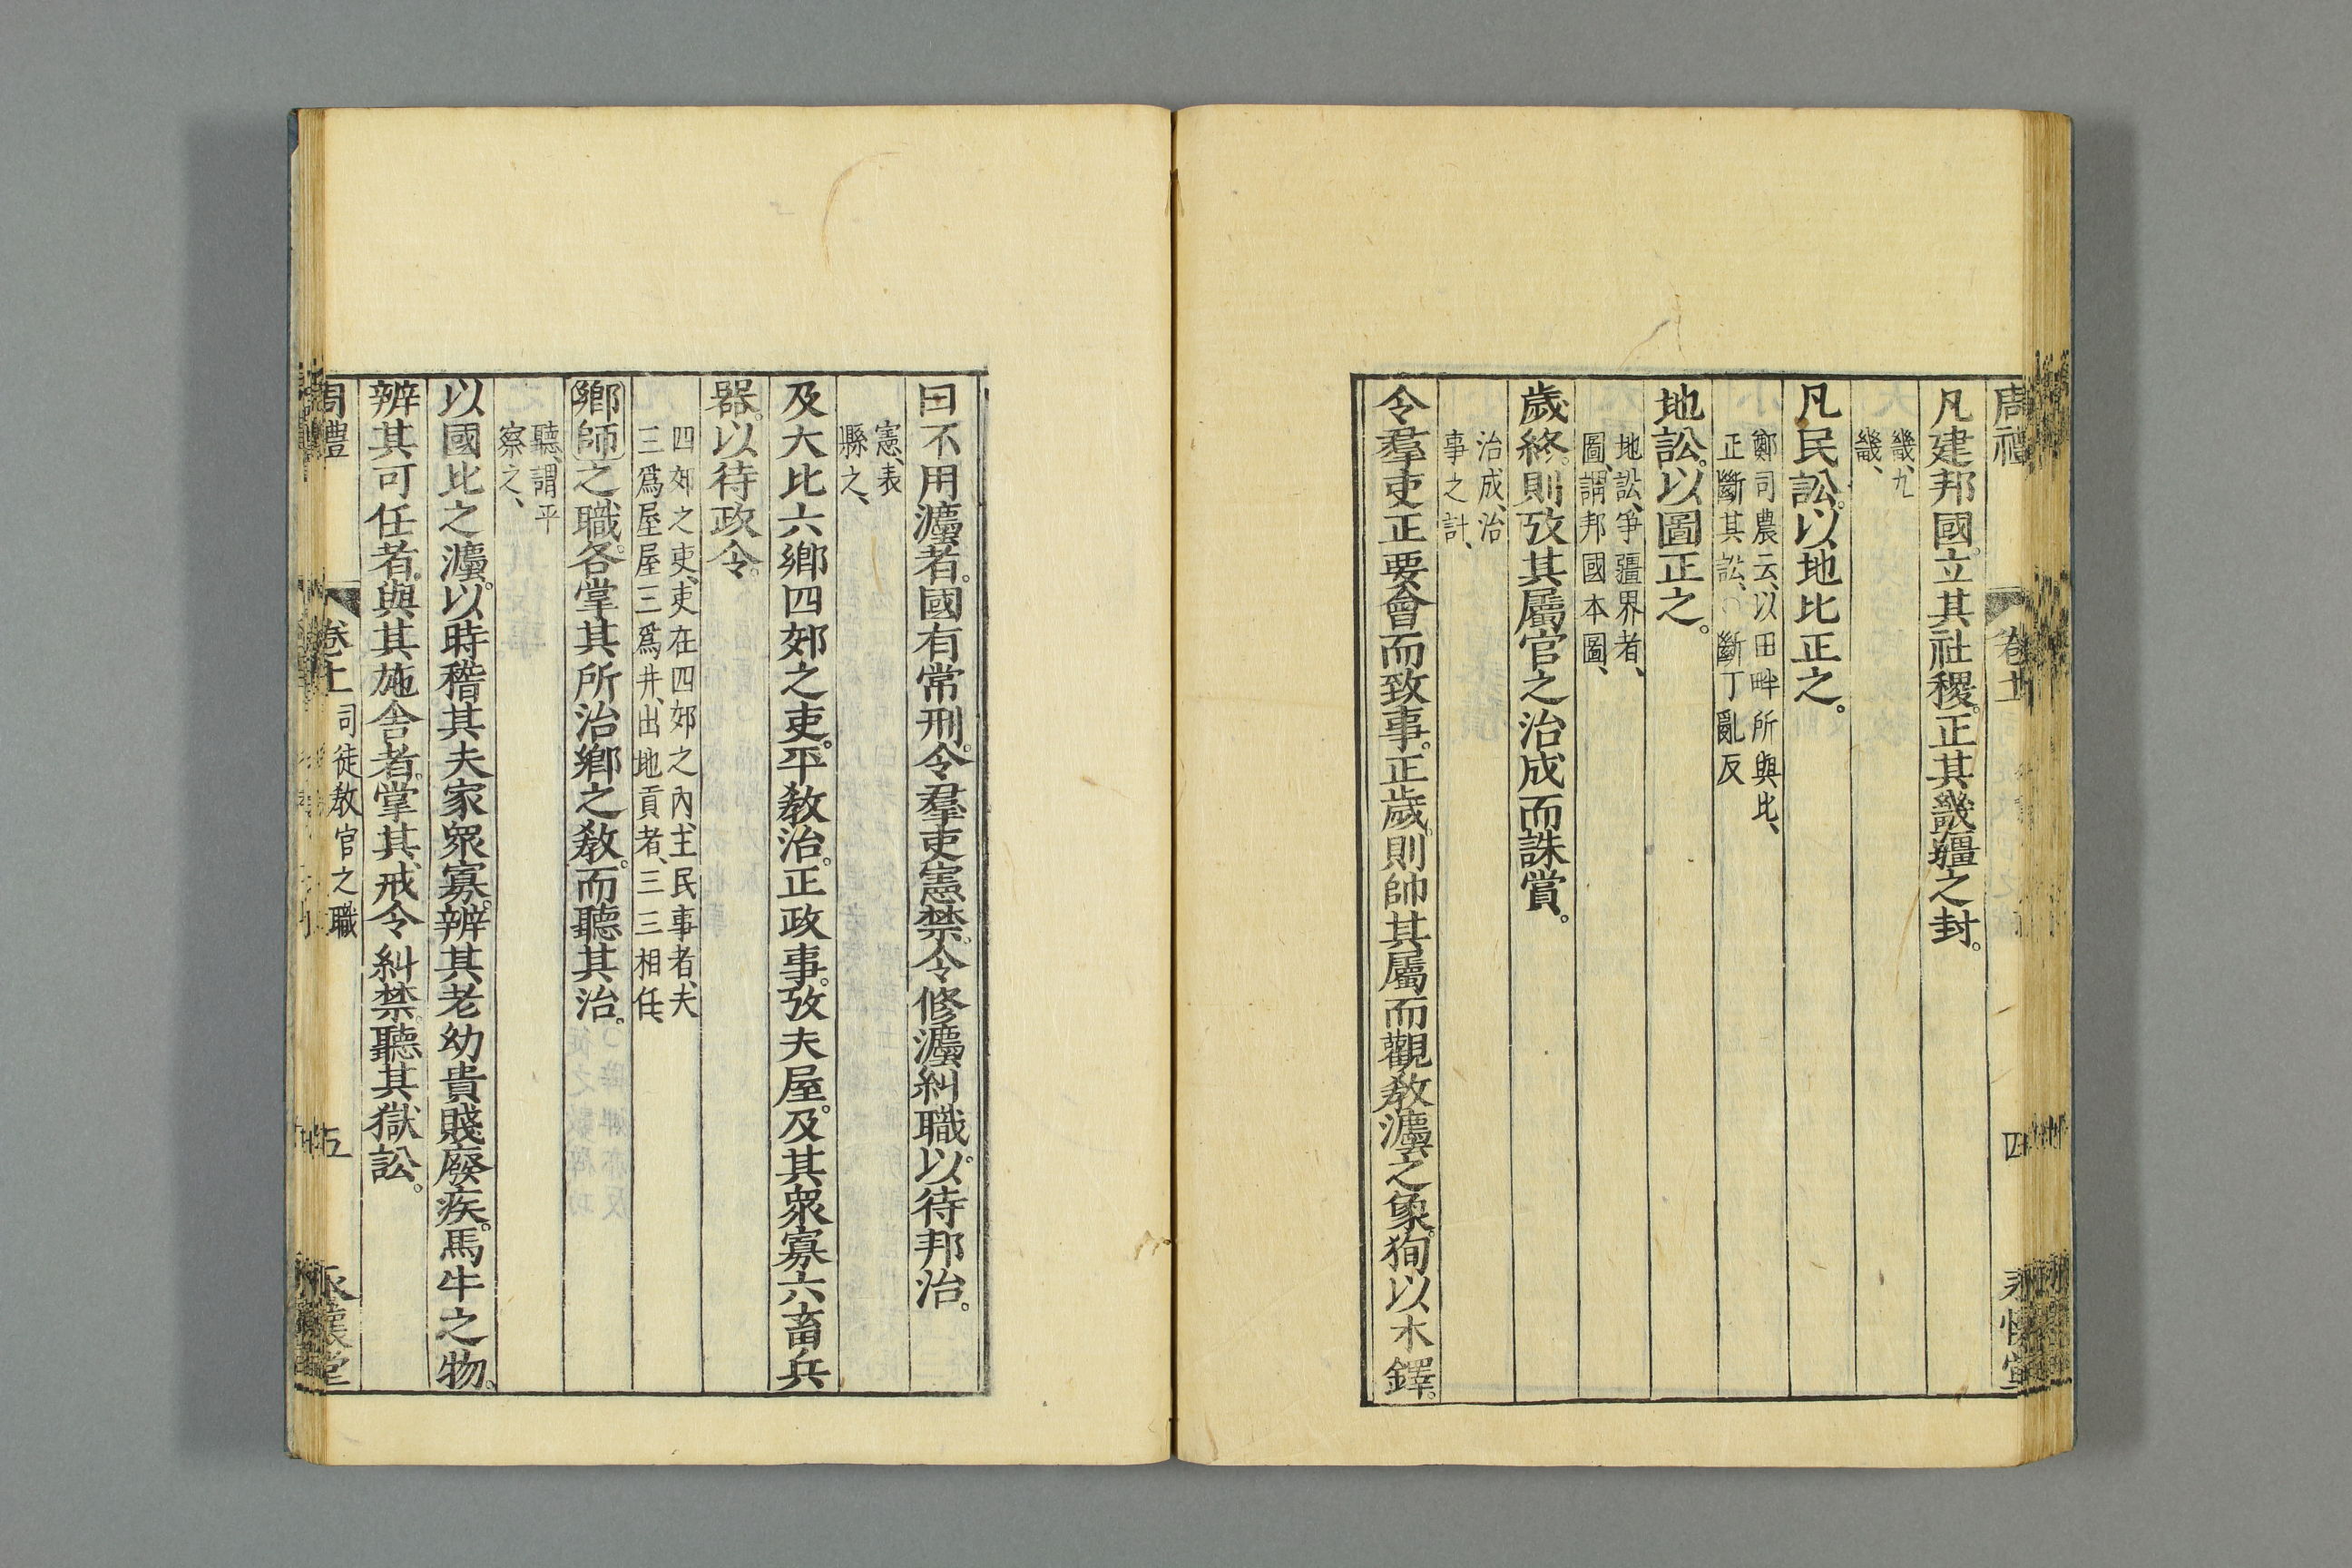 周禮 卷十一 四 永懷堂
凡建邦國。立其社稷。正其畿疆之封。
畿、九
畿、
凡民訟。以地比正之。
鄭司農云、以田畔所與比、
正斷其訟、○斷丁亂反
地訟。以圖正之。
地訟、爭疆界者、
圖、謂邦國本圖、
歲終。則攷其屬官之治成而誅賞。
治成、治
事之計、
令羣吏正要會而致事。正歲。則帥其屬而觀敎灋之象。狥以木鐸。
曰不用灋者。國有常刑。令羣吏憲禁。令修灋糾職。以待邦治。
憲、表
縣之、
及大比六鄉四郊之吏。平敎治。正政事。攷夫屋。及其衆寡六畜兵
器。以待政令。
四郊之吏、吏在四郊之內、主民事者、夫
三爲屋屋三爲井、出地貢者、三三相任、
鄉師之職。各掌其所治鄉之敎。而聽其治。
聽、謂平
察之、
以國比之灋。以時稽其夫家衆寡。辨其老幼貴賤廢疾。馬牛之物。
辨其可任者。與其施舍者。掌其戒令糾禁。聽其獄訟。
周禮 卷十一 司徒敎官之職 五 永懷堂